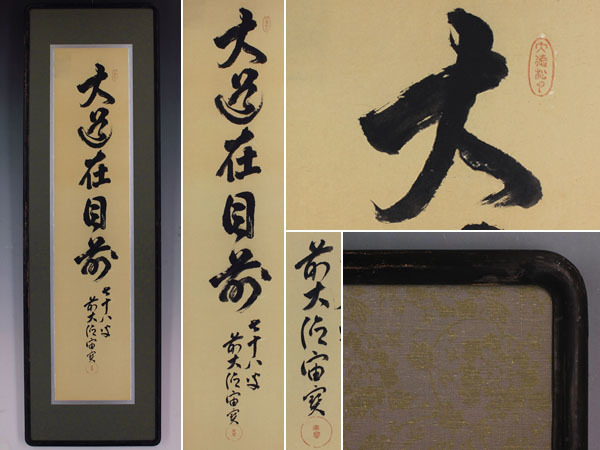 大道在目前
七十八叟
前大徳宙宝
大道在目前
七十八叟
前大徳宙宝
大
前大徳宙宝